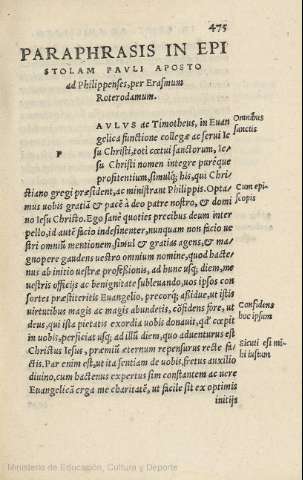 475
PARAPHRASIS IN EPI
STOLAM PAVLI APOSTO
ad Philippenses, per Erasmum
Roterodamum.
P AVLVS ac Timotheus, in Euan
gelica functione collegæ ac serui Ie
su Christi, toti cœtui sanctorum, Ie-
su Christi nomen integre puréque
profitentium, simulq; his, qui Chri
stiano gregi præsident, ac ministrant Philippis. Opta
mus uobis gratiā & pacē à deo patre nostro, & domi
no Iesu Christo. Ego sanè quoties precibus deum inter
pello, id autē facio indesinenter, nunquam non facio ue
stri omniū mentionem, simul & gratias agens, & ma-
gnopere gaudens uestro omnium nomine, quod hacte-
nus ab initio uestræ professionis, ad hunc usq; diem, me
uestris officijs ac benignitate subleuando, uos ipsos con
sortes præstiteritis Euangelio, precorq; assidue, ut istis
uirtutibus magis ac magis abundetis, cōfidens fore, ut
deus, qui ista pietatis exordia uobis donauit, qd' cœpit
in uobis, perficiat usq; ad illū diem, quo aduenturus est
Christus Iesus, præmiū æternum repensurus recte fa-
ctis. Par enim est, ut ita sentiam de uobis, fretus auxilio
diuino, cum hactenus expertus sim constantem ac uere
Euangelicā erga me charitatē, ut facile sit ex optimis
initijs
Omnibus
sanctis
Cum epi-
scopis
Confidens
hoc ipsum
Sicuti est mi-
hi iustum
Ministerio de Educación, Cultura y Deporte